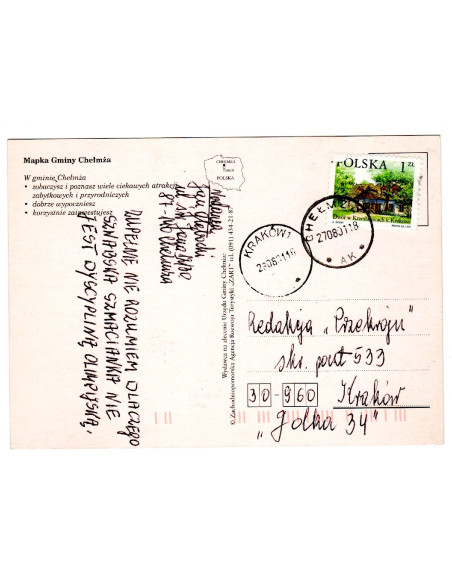 Mapka Gminy Chełmża
W gminie Chełmża
• zobaczysz i poznasz wiele ciekawych atrakcji
zabytkowych i przyrodniczych
• dobrze wypoczniesz
• korzystnie zainwestujesz
CHEŁMŻA
Toruń
POLSKA
POLSKA 1 ZŁ
Dwór w Krzesławicach k. Krakowa
CHEŁMŻA
270801 18
AK
KRAKÓW 1
290801 18
Nadawca
Jan
87-140 Chełmża
ZUPEŁNIE NIE ROZUMIEM DLACZEGO
SZWAJOSKA SZMACIANKA NIE
JEST DYSCYPLINĄ OLIMPIJSKĄ.
Wydawca na zlecenie Urzędu Gminy Chełmża:
© Zachodniopomorska Agencja Rozwoju Turystyki „ZART" tel. (091) 434-21-87
Redakcja „Przekroju"
skr. poczt 533
30-960 Kraków
„Jolka 34"